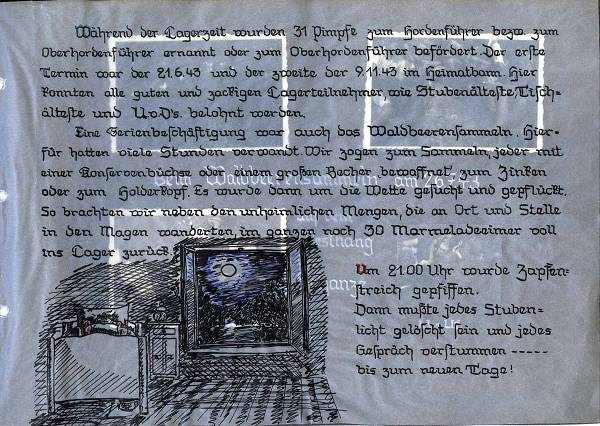 Während der Lagerzeit wurden 31 Pimpfe zum Hordenführer bezw. zum
Oberhordenführer ernannt oder zum Oberhordenführer befördert. Der erste
Termin war der 21.6.43 und der zweite der 9.11.43 im Heimatbann. Hier
konnten alle guten und zackigen Lagerteilnehmer, wie Stubenälteste, Tisch=
älteste und U.v.D's. belohnt werden.
Eine Ferienbeschäftigung war auch das Waldbeerensammeln. Hier=
für hatten viele Stunden verwandt. Wir zogen zum Sammeln, jeder mit
einer Konservenbüchse oder einem großen Becher bewaffnet, zum Zinken
oder zum Holderkopf. Es wurde dann um die Wette gesucht und gepflückt.
So brachten wir neben den unheimlichen Mengen, die an Ort und Stelle
in den Magen wanderten, im ganzen noch 30 Marmeladeeimer voll
ins Lager zurück.
Um 21.00 Uhr wurde Zapfen=
streich gepfiffen.
Dann mußte jedes Stuben=
licht gelöscht sein und jedes
Gespräch verstummen -----
bis zum neuen Tage!
Beim Waldbeerensammeln am